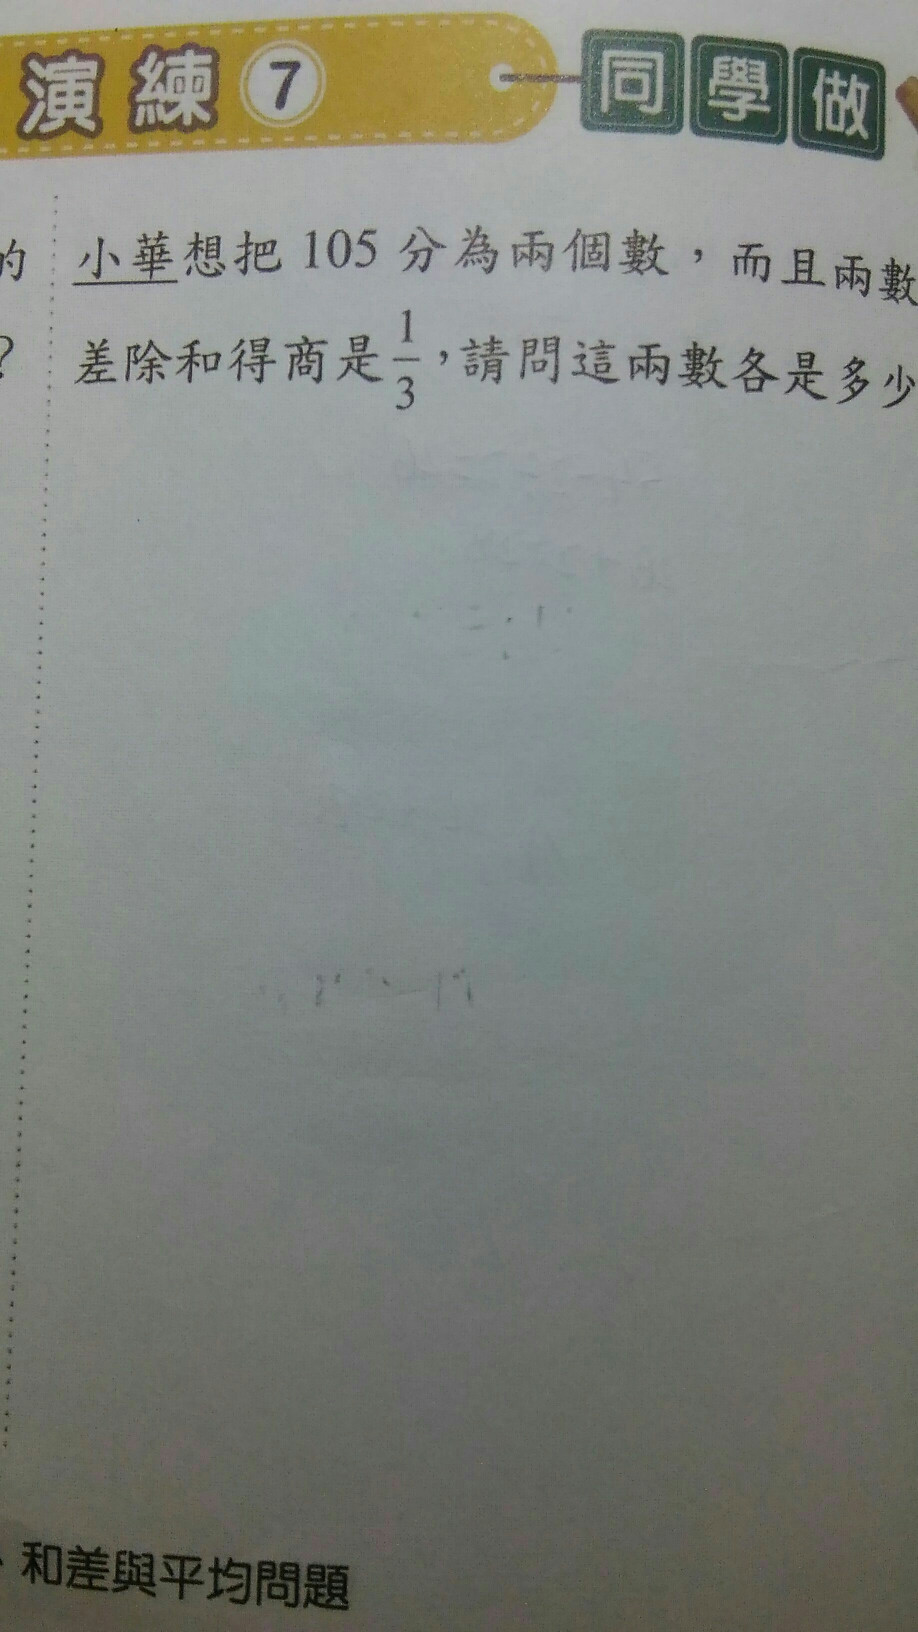 演練 7 同學做
的
小華想把 105 分為兩個數，而且兩數
?
差除和得商是 1/3，請問這兩數各是多少
和差與平均問題